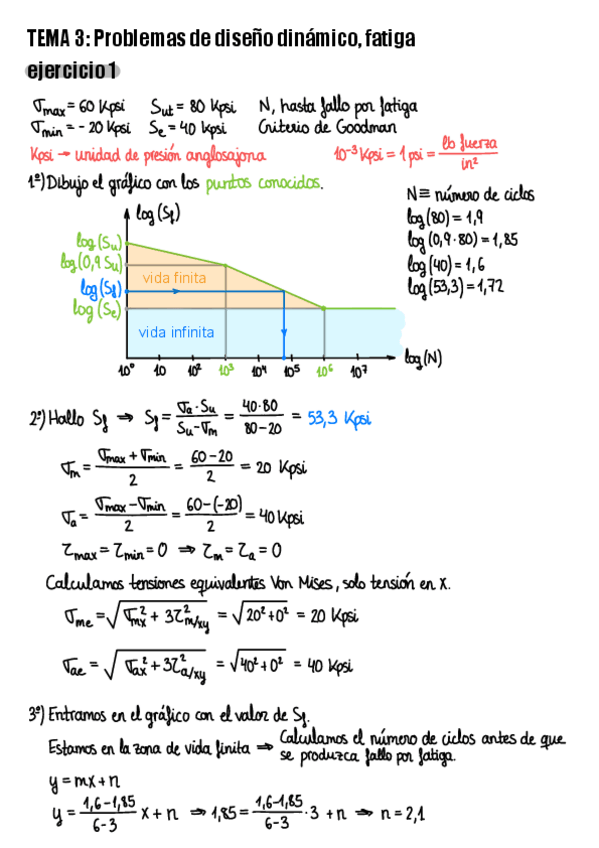 TEMA 3: Problemas de diseño dinámico, fatiga
ejercicio 1
σmax = 60 Kpsi    Sut = 80 Kpsi    N, hasta fallo por fatiga
σmin = - 20 Kpsi    Se = 40 Kpsi    Criterio de Goodman
Kpsi → unidad de presión anglosajona    10⁻³ Kpsi = 1 psi = lb fuerza / in²
1º) Dibujo el gráfico con los puntos conocidos.
N ≡ número de ciclos
log(80) = 1,9
log(0,9·80) = 1,85
log(40) = 1,6
log(53,3) = 1,72
log(Sf)
log(Su)
log(0,9 Su)
log(Sf)
log(Se)
vida finita
vida infinita
10⁰ 10 10² 10³ 10⁴ 10⁵ 10⁶ 10⁷
log(N)
2º) Hallo Sf ⇒ Sf = σa · Su / Su - σm = 40·80 / 80-20 = 53,3 Kpsi
σm = σmax + σmin / 2 = 60-20 / 2 = 20 Kpsi
σa = σmax - σmin / 2 = 60-(-20) / 2 = 40 Kpsi
τmax = τmin = 0 ⇒ τm = τa = 0
Calculamos tensiones equivalentes Von Mises, solo tensión en x.
σme = √(σmx² + 3τ²m/xy) = √(20² + 0²) = 20 Kpsi
σae = √(σax² + 3τ²a/xy) = √(40² + 0²) = 40 Kpsi
3º) Entramos en el gráfico con el valor de Sf.
Estamos en la zona de vida finita ⇒ Calculamos el número de ciclos antes de que
se produzca fallo por fatiga.
y = mx + n
y = 1,6-1,85 / 6-3 x + n ⇒ 1,85 = 1,6-1,85 / 6-3 · 3 + n ⇒ n = 2,1